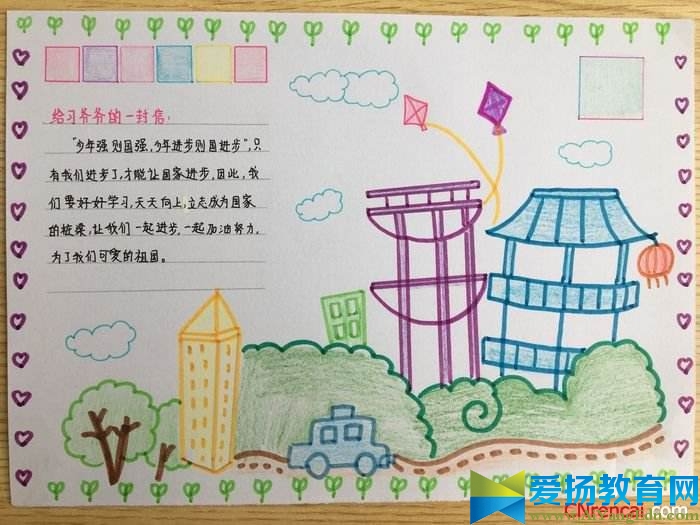 给习爷爷的一封信:
"少年强则国强,少年进步则国进步",只
有我们进步了,才能让国家进步。因此,我
们要好好学习,天天向上,立志成为国家
的栋梁,让我们一起进步,一起加油努力,
为了我们可爱的祖国。
爱扬教育网
CNrencai.com